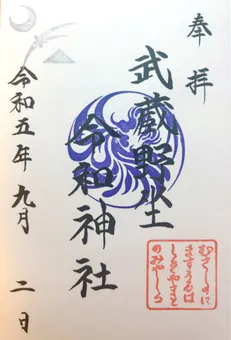 奉拝
武蔵野坐
令和神社
令和五年九月 二日
むさしのに
ますうるは
しきやまと
のみやしろ